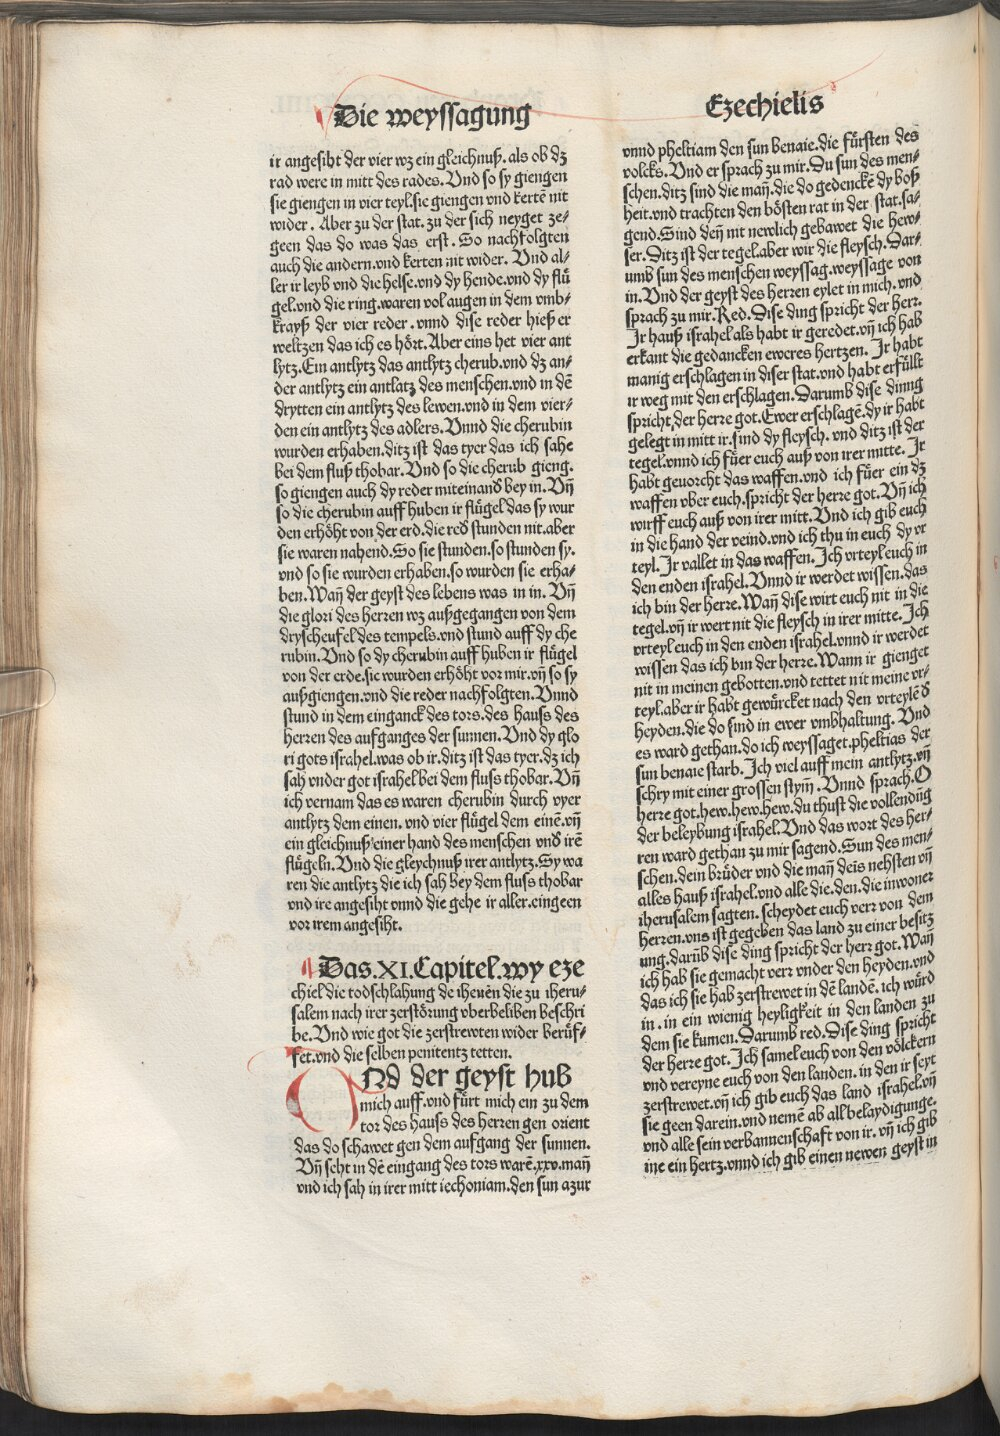 Die weyssagung
Ezechielis
ir angesiht der vier wz ein gleichnuß. als ob dz
rad were in mitt des rades. Und so sy giengen
sie giengen in vier teyl. sie giengen vnd kertē nit
wider. Aber zu der stat. zu der sich neyget ze⸗
geen das do was das erst. So nachfolgten
auch die andern. vnd kerten nit wider. Und al⸗
ler ir leyb vnd die helse. vnd dy hende. vnd dy flü
gel. vnd die ring. waren vol augen in dem vmb⸗
krayß der vier reder. vnnd dise reder hieß er
weltzen das ich es hört. Aber eins het vier ant
lytz. Ein antlytz das antlytz cherub. vnd dz an⸗
der antlytz ein antlatz des menschen. vnd in dē
drytten ein antlytz des lewen. vnd in dem vier⸗
den ein antlytz des adlers. Unnd die cherubin
wurden erhaben. ditz ist das tyer das ich sahe
bei dem fluß thobar. Und so die cherub gieng.
so giengen auch dy reder miteinand bey in. Uñ
so die cherubin auff huben ir flügel das sy wur
den erhöht von der erd. die red stunden nit. aber
sie waren nahend. So sie stunden. so stunden sy.
vnd so sie wurden erhaben. so wurden sie erha⸗
ben. Wañ der geyst des lebens was in in. Uñ
die glori des herren wz außgegangen von dem
dryscheufel des tempels. vnd stund auff dy che
rubin. Und so dy cherubin auff huben ir flügel
von der erde. sie wurden erhöht vor mir. vñ so sy
außgiengen. vnd die reder nachfolgten. Unnd
stund in dem einganck des tors. des hauß des
herren des aufganges der sunnen. Und dy glo
ri gots israhel. was ob ir. ditz ist das tyer. dz ich
sah vnder got israhel bei dem fluss thobar. Uñ
ich vernam das es waren cherubin durch vyer
antlytz dem einen. vnd vier flügel dem einē. vñ
ein gleichnuß einer hand des menschen vnd irē
flügeln. Und die gleychnuß irer antlytz. Sy wa
ren die antlytz die ich sah bey dem fluss thobar
vnd ire angesiht vnnd die gehe ir aller. eingeen
vor irem angesiht.
Das .XI. Capitel. wy eze
chiel die todschlahung de iheuēn die zu iheru⸗
salem nach irer zerstörung vberbeliben beschri
be. Und wie got die zerstrewten wider berüf⸗
fet. vnd die selben penitentz tetten.
Nd der geyst hub
mich auff. vnd fürt mich ein zu dem
tor des hauß des herren gen orient
das do schawet gen dem aufgang der sunnen.
Uñ seht in dē eingang des tors warē .xxv. mañ
vnd ich sah in irer mitt iechoniam. den sun azur
vnnd pheltiam den sun benaie. die fürsten des
volcks. Und er sprach zu mir. Du sun des men⸗
schen. ditz sind die mañ. die do gedenckē dy boß
heit. vnd trachten den bösten rat in der stat. sa⸗
gend. Sind deñ nit newlich gebawet die hew⸗
ser. Ditz ist der tegel. aber wir die fleysch. Dar⸗
umb sun des menschen weyssag. weyssage von
in. Und der geyst des herren eylet in mich. vnd
sprach zu mir. Red. Dise ding spricht der herr.
Ir hauß israhel als habt ir geredet. vñ ich hab
erkant die gedancken eweres hertzen. Ir habt
manig erschlagen in diser stat. vnd habt erfüllt
ir weg mit den erschlagen. Darumb dise dinng
spricht der herre got. Ewer erschlagē. dy ir habt
gelegt in mitt ir. sind dy fleysch. vnd ditz ist der
tegel. vnnd ich füer euch auß von irer mitte. Ir
habt geuorcht das waffen. vnd ich füer ein dz
waffen vber euch. spricht der herre got. Uñ ich
wirff euch auß von irer mitt. Und ich gib euch
in die hand der veind. vnd ich thu in euch dy vr
teyl. Ir vallet in das waffen. Ich vrteyl euch in
den enden israhel. Unnd ir werdet wissen. das
ich bin der herre. Wañ dise wirt euch nit in die
tegel. vñ ir wert nit die fleysch in irer mitte. Ich
vrteyl euch in den enden israhel. vnnd ir werdet
wissen das ich bin der herre. Wann ir gienget
nit in meinen gebotten. vnd tettet nit meine vr⸗
teyl. aber ir habt gewürcket nach den vrteylē d
heyden. die do sind in ewer vmbhaltung. Und
es ward gethan. do ich weyssaget. pheltias der
sun benaie starb. Ich viel auff mein antlytz. vñ
schry mit einer grossen stym̃. Unnd sprach. O
herre got. hew. hew. hew. du thust die vollendūg
der beleybung israhel. Und das wort des her⸗
ren ward gethan zu mir sagend. Sun des men⸗
schen. dein brüder vnd die mañ deīs nehsten vñ
alles hauß israhel. vnd alle die. den. die inwoner
iherusalem sagten. scheydet euch verr von dem
herren. vns ist gegeben das land zu einer besitz
ung. darūb dise ding spricht der herr got. Wañ
ich hab sie gemacht verr vnder den heyden. vnd
das ich sie hab zerstrewet in dē landē. ich würd
in. in ein wienig heyligkeit in den landen zu
dem sie kumen. Darumb red. Dise ding spricht
der herre got. Ich samel euch von den völckern
vnd vereyne euch von den landen. in den ir seyt
zerstrewet. vñ ich gib euch das land israhel. vñ
sie geen darein. vnd nemē ab all belaydigunge.
vnd alle sein verbannenschaft von ir. vñ ich gib
ine ein hertz. vnnd ich gib einen newen geyst in